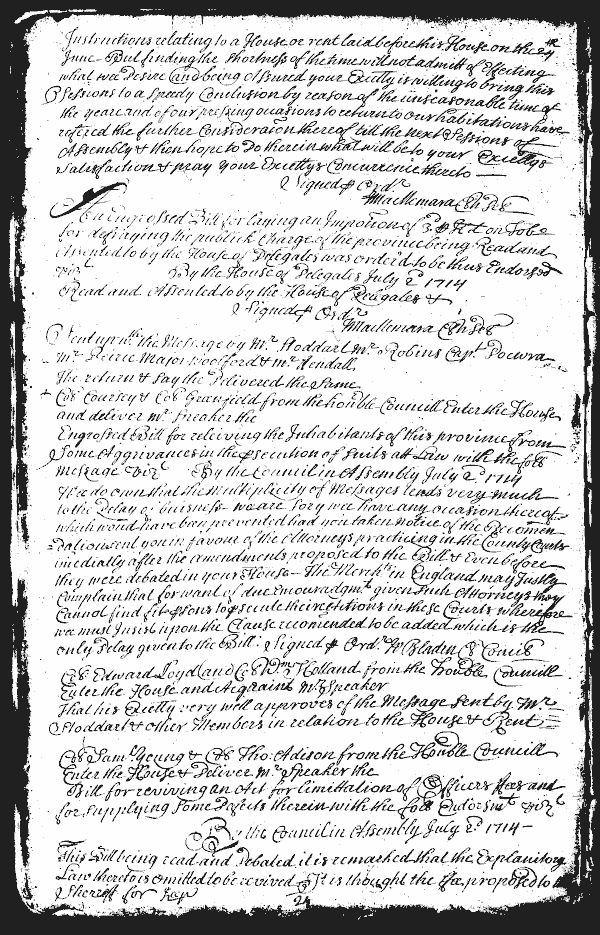 Instructions relating to a House or rent laid before this House on the 24th
June But finding the shortness of the time will not admitt of Effecting
what we desire and being assured your Excelly is willing to bring this
Sessions to a Speedy Conclusion by reason of the unseasonable time of
the year and of our pressing occasions to return to our habitations have
refered the further Consideration thereof till the next Sessions of
Assembly & then hope to do therein what will be to your Excellys
Satisfaction & pray your Excellys Concurrence thereto
Signed p Ordr
MacNemara Cl h Del
An Engrossed Bill for laying an Imposition of 3 p on Tobo
for defraying the publick Charge of the province being Read and
Assented to by the House of Delegates was order'd to be thus Endorsed
vizt By the House of Delegates July 2d 1714
Read and Assented to by the House of Delegates &
Signed p Ordr
MacNemara Cl h Del
Sent up wth the Message by Mr Stoddart Mr Robins Capt
Mr Peirce Major Woolford & Mr Kendall
The return & say they Delivered the same
Col Coursey & Col Greenfield from the honble Councill Enter the House
and deliver Mr Speaker the
Engrossed Bill for releiving the Inhabitants of this province from
Some Aggrivances in the psecution of Suits att Law with the foll
message vizt By the Council in Assembly July 2d 1714
We do own that the multiplicity of Messages tends very much
to the Delay of buisness we are Sory we have any occasion thereof
which would have been prevented had you taken notice of the Recomen
dation sent you in favour of the Attorneys practicing in the County Courts
imediatly after the amendments proposed to the Bill & Even before
they were debated in your House The Mercht in England may Justly
Complain that for want of due Encouradgmt given Such Attorneys they
Cannot find fit psons to psecute their actions in these Courts wherefore
we must Insist upon the Clause recomended to be added which is the
only Delay given to the Bill Signed p Ordr W Bladen Cl Concil
Col Edward Loyd and Col Wm Holland from the honble Councill
Enter the House and Acquaint Mr Speaker
That his Excelly very well approves of the Message sent by Mr
Stoddart & other Members in relation to the House & Rent
Col Saml Young & Col Tho: Adison from the Honble Councill
Enter the House & Deliver Mr Speaker the
Bill for reviving an Act for limittation of Officers fees and
for supplying Some Defects therein with the foll Endorsmt vizt
By the Council in Assembly July 2d 1714
This Bill being read and Debated, it is remarked that the Explanitory
Law thereto is omitted to be revived It is thought the fee proposed to
Sherriff for
24